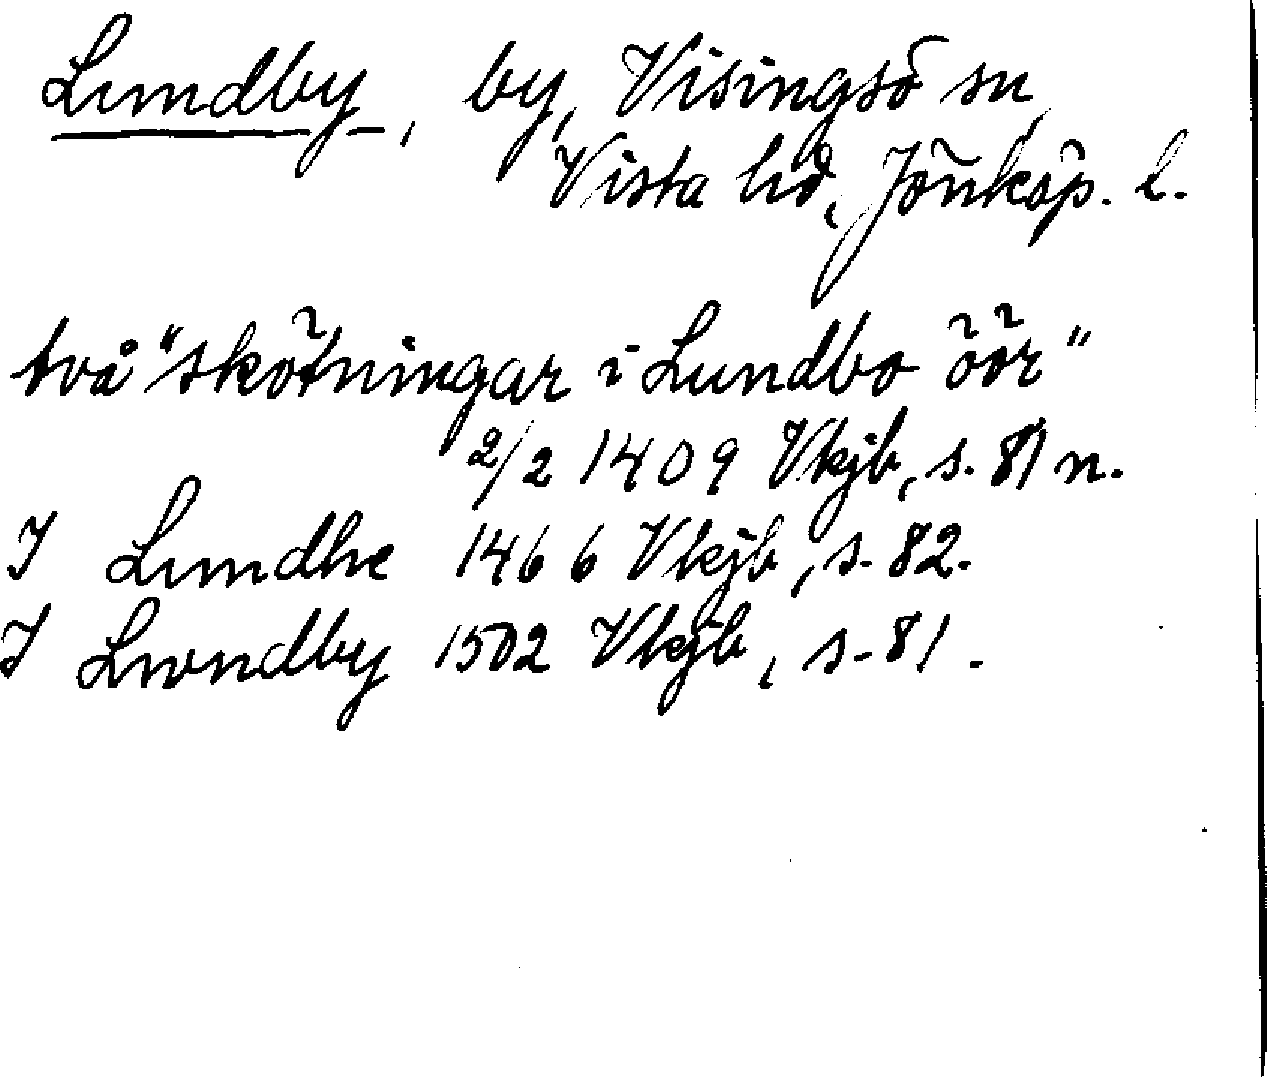 Lundby, by, Visingsö sn,
Vista hd, Jönköp. l.
två "skötningar i Lundbo öör"
2/2 1409 Vkjb, s. 81 n.
I Lundhe 1466 Vkjb, s. 82.
I Lwndby 1502 Vkjb, s. 81.